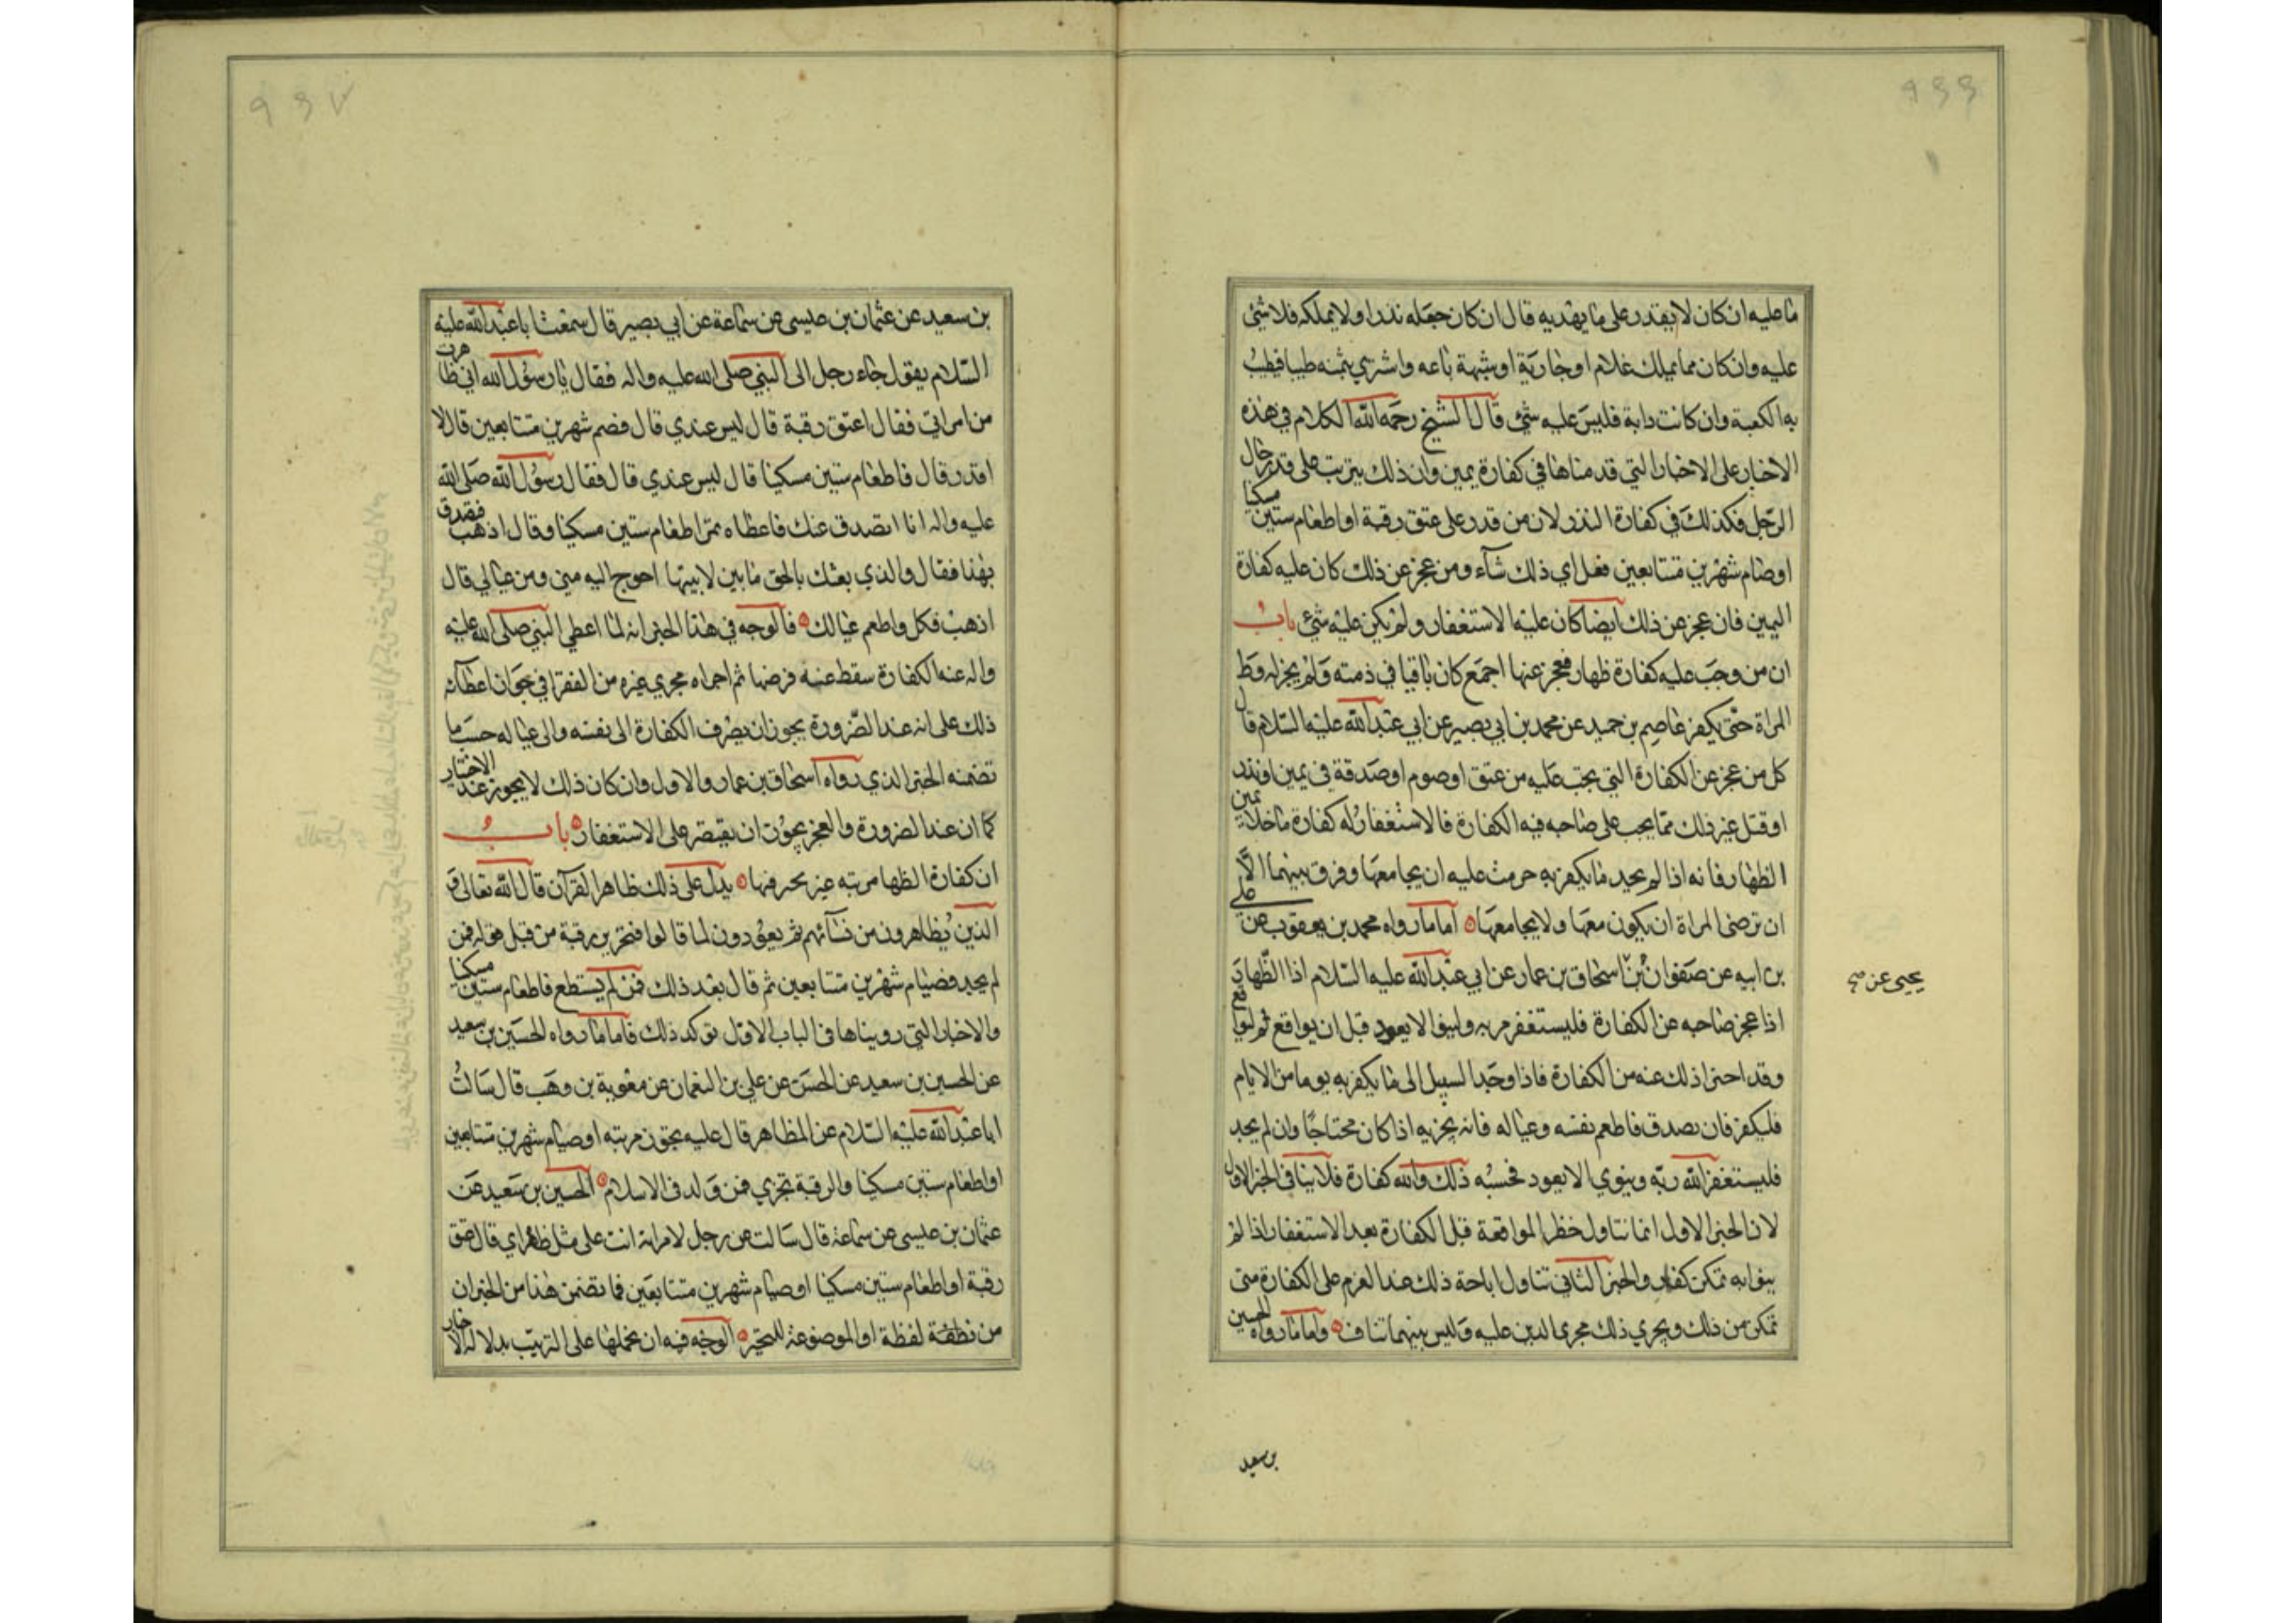 ٩٦٦
ما عليه ان كان لا يقدر على ما يهديه قال ان كان جعله نذرا ولا يملكه فلا شئ
عليه وان كان مما يملك غلام او جارية او شبهه باعه واشترى بثمنه طيبا فيطيب
به الكعبة وان كانت دابة فليس عليه شئ قال الشيخ رحمه الله الكلام في هذه
الاخبار على الاخبار التي قدمناها في كفارة يمين وان ذلك يترتب على قدر حال
الرجل فكذلك في كفارة النذر لان من قدر على عتق رقبة او اطعام ستين مسكينا
او صيام شهرين متتابعين فعل اي ذلك شاء ومن عجز عن ذلك كان عليه كفارة
اليمين فان عجز عن ذلك ايضا كان عليه الاستغفار ولم يكن عليه شئ باب
ان من وجب عليه كفارة ظهار فعجز عنها اجمع كان باقيا في ذمته ولم يجز له وطؤ
المراة حتى يكفر عاصم بن حميد عن محمد بن ابي بصير عن ابي عبد الله عليه السلام قال
كل من عجز عن الكفارة التي يجب عليه من عتق او صوم او صدقة في يمين او نذر
او قتل غير ذلك مما يجب على صاحبه فيه الكفارة فالاستغفار له كفارة ما خلا يمين
الظهار فانه اذا لم يجد ما يكفر به حرمت عليه ان يجامعها وفرق بينهما الا
ان ترضى المراة ان يكون معها ولا يجامعها اما ما رواه محمد بن يعقوب عن على
بن ابيه عن صفوان بن اسحاق بن عمار عن ابي عبد الله عليه السلام اذا الظهار
يحيى عن صح
اذا عجز صاحبه عن الكفارة فليستغفر ربه ولينو الا يعود قبل ان يواقع ثم ليواقع
وقد اجزا ذلك عنه من الكفارة فاذا وجد السبيل الى ما يكفر به يوما من الايام
فليكفر فان تصدق فاطعم نفسه وعياله فانه يجزيه اذا كان محتاجا وان لم يجد
فليستغفر الله ربه وينوي الا يعود فحسبه ذلك والله كفارة فلا ينافى الخبر الاول
لان الخبر الاول انما تناول حظر المواقعة قبل الكفارة بعد الاستغفار اذا لم
ينو انه تمكن كفار والخبر الثاني تناول اباحة ذلك عند العزم على الكفارة متى
تمكن من ذلك ويجري ذلك مجرى الدين عليه وليس بينهما تناف واما ما رواه الحسين
بن سعيد
٩٦٧
بن سعيد عن عثمان بن عيسى عن سماعة عن ابي بصير قال سمعت ابا عبد الله عليه
السلام يقول جاء رجل الى النبي صلى الله عليه واله فقال يا رسول الله اني ظاهرت
من امراتي فقال اعتق رقبة قال ليس عندي قال فصم شهرين متتابعين قال لا
اقدر قال فاطعام ستين مسكينا قال ليس عندي قال فقال رسول الله صلى الله
عليه واله انا اتصدق عنك فاعطاه تمرا طعام ستين مسكينا وقال اذهب فتصدق
بهذا فقال والذي بعثك بالحق ما بين لابيتها احوج اليه مني ومن عيالي قال
اذهب فكل واطعم عيالك فالوجه في هذا الخبر انه لما اعطى النبي صلى الله عليه
واله عنه الكفارة سقط عنه فرضها ثم اجراه مجرى غيره من الفقرا في جواز اعطائه
ذلك على انه عند الضرورة يجوز ان يصرف الكفارة الى نفسه والى عياله حسب ما
تضمنه الخبر الذي رواه اسحاق بن عمار والاول وان كان ذلك لا يجوز عند الاختيار
كما ان عند الضرورة والعجز يجوز ان يقتصر على الاستغفار باب
ان كفارة الظهار مرتبه غير مخير فيها يدل على ذلك ظاهر القرآن قال الله تعالى و
الذين يظاهرون من نسائهم ثم يعودون لما قالوا فتحرير رقبة من قبل قوله فمن
لم يجد فصيام شهرين متتابعين ثم قال بعد ذلك فمن لم يستطع فاطعام ستين مسكينا
والاخبار التي رويناها في الباب الاول توكد ذلك فاما ما رواه الحسين بن سعيد
عن الحسين بن سعيد عن الحسن عن علي بن النعمان عن معوية بن وهب قال سالت
ابا عبد الله عليه السلام عن المظاهر قال عليه تحرير رقبه او صيام شهرين متتابعين
او اطعام ستين مسكينا والرقبة تجزي فمن ولد في الاسلام الحسين بن سعيد عن
عثمان بن عيسى عن سماعة قال سالت عن رجل لامراته انت على مثل ظهر امي قال عتق
رقبة او اطعام ستين مسكينا او صيام شهرين متتابعين فما تضمن هذا من الخبران
من لفظة او الموضوعة للتخير الوجه فيه ان نحملها على الترتيب بدلالة الاخبار